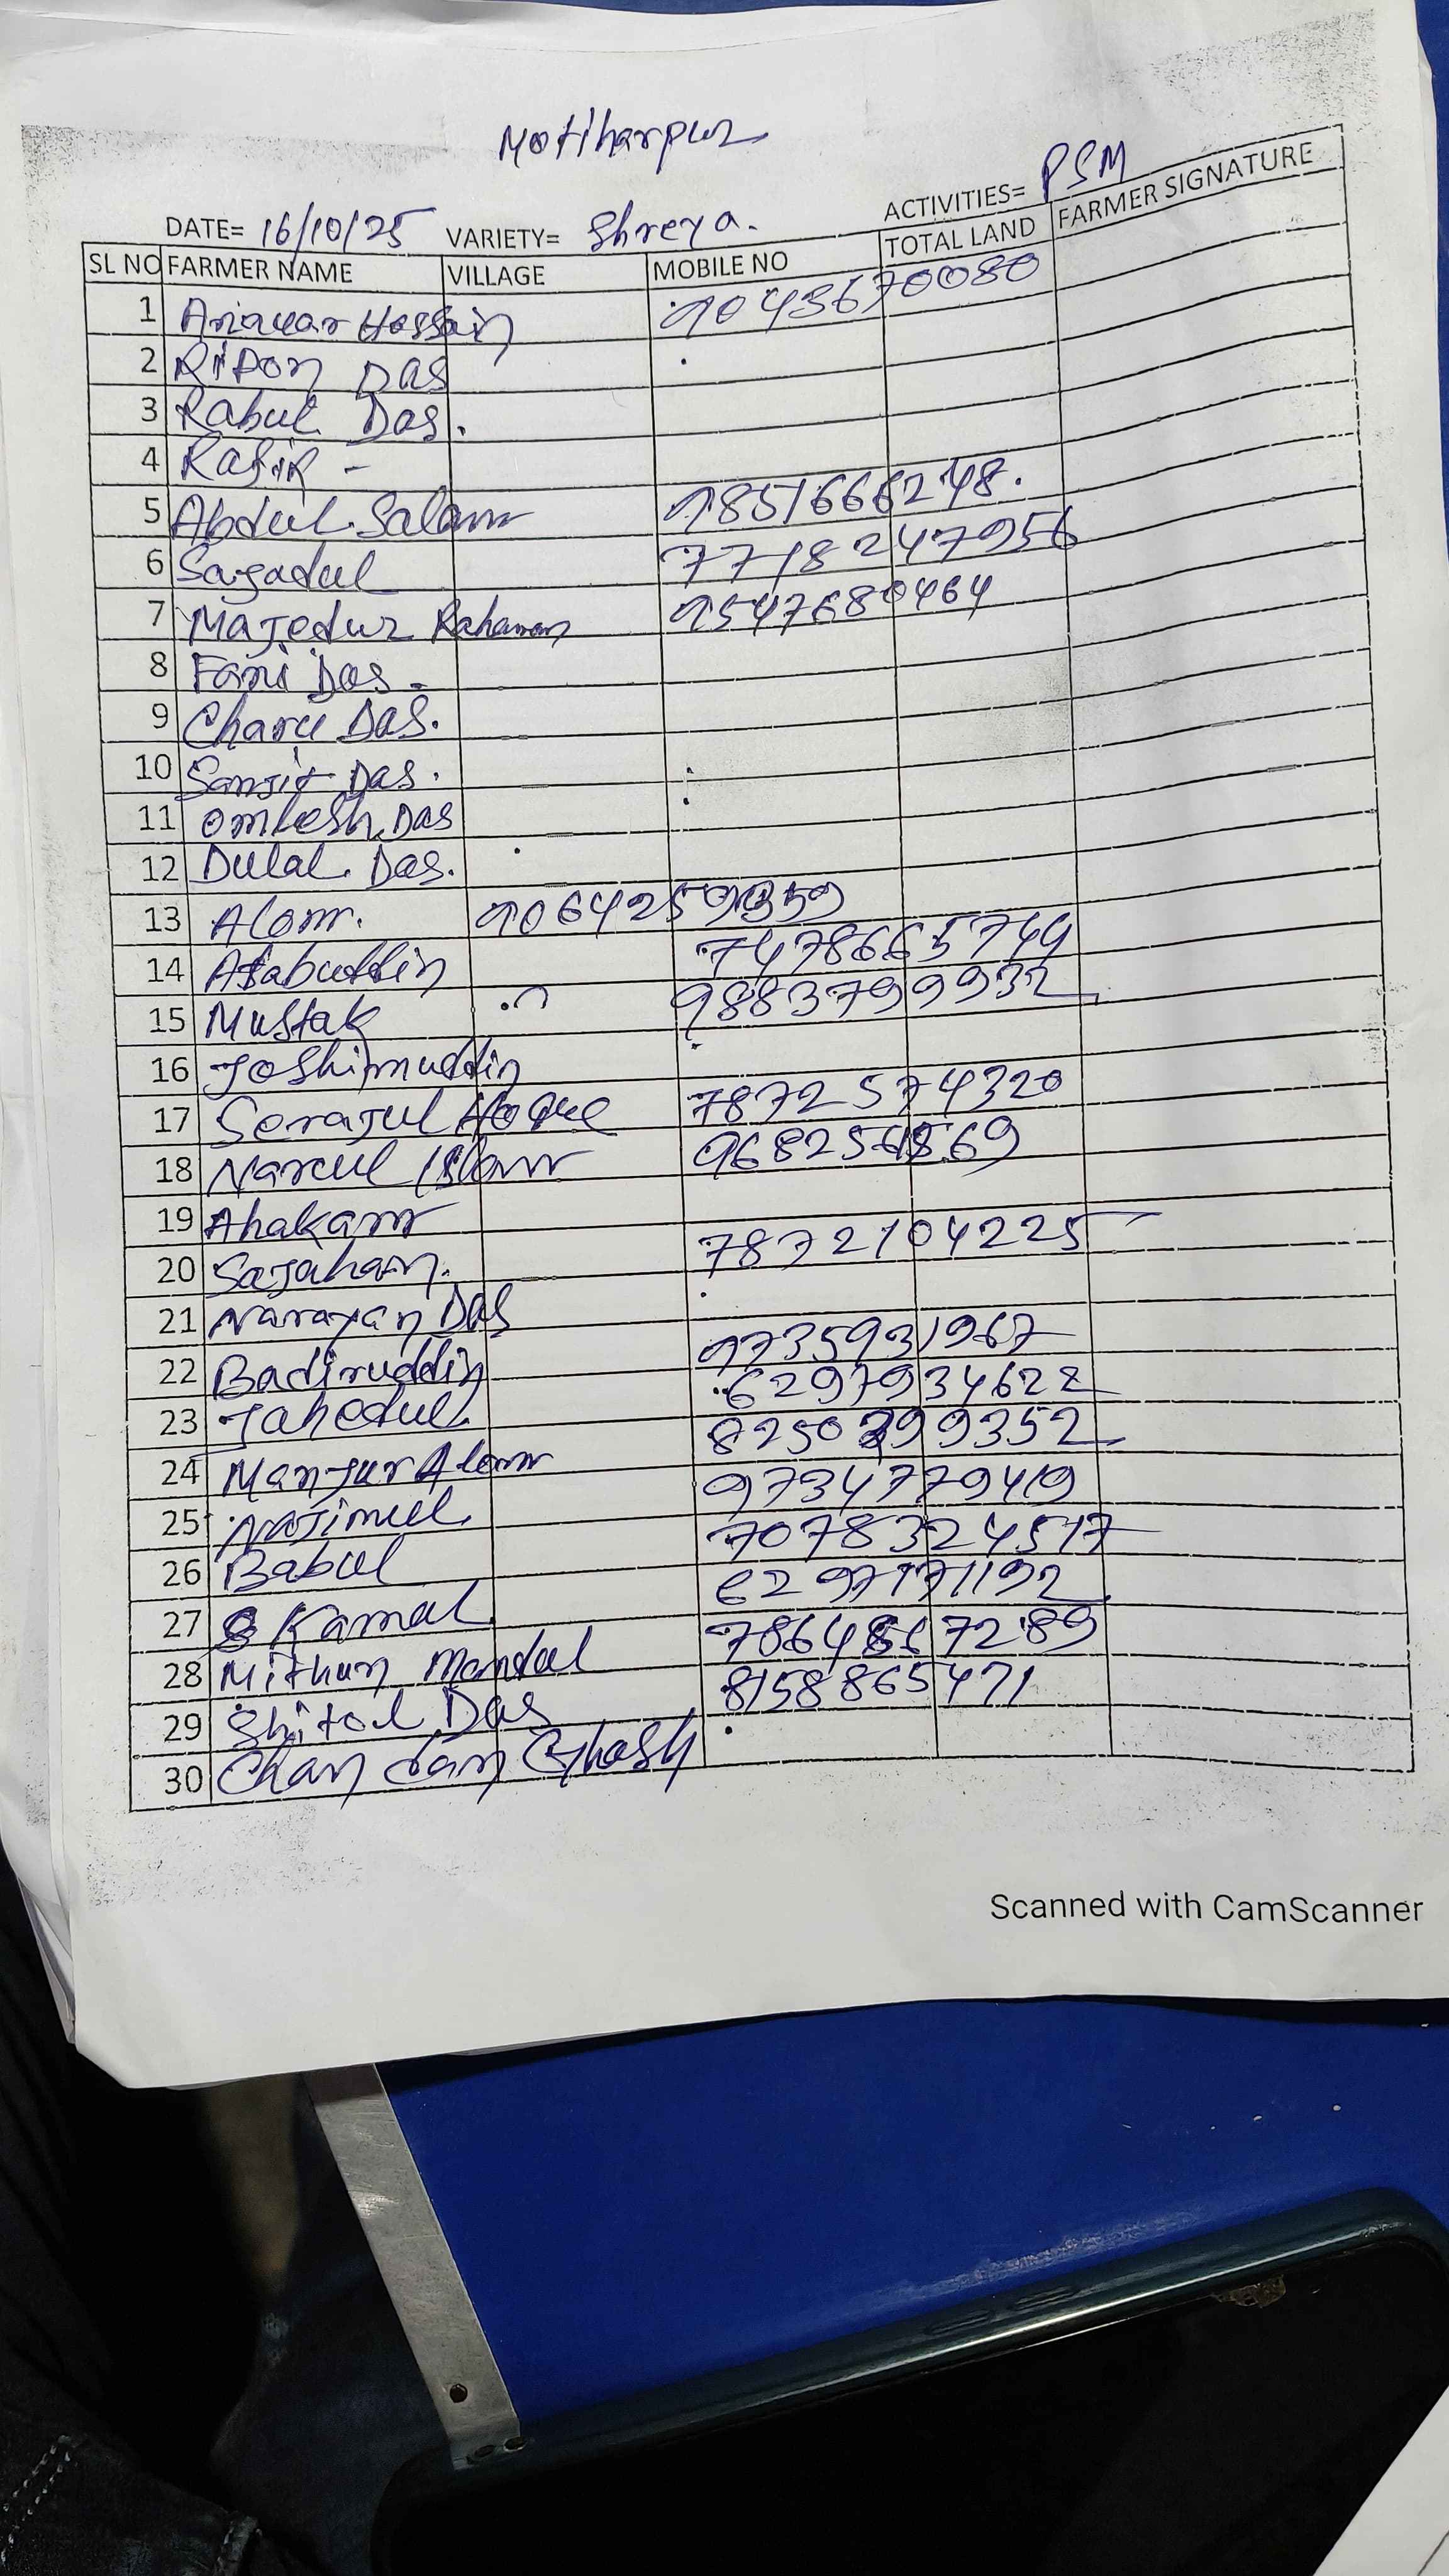 Motiharpur
DATE= 16/10/25 VARIETY= Shreya. ACTIVITIES= PSM
SL NO FARMER NAME VILLAGE MOBILE NO TOTAL LAND FARMER SIGNATURE
1 Anawar Hossain 9043670080
2 Ripon Das
3 Rabul Das.
4 Rafik -
5 Abdul Salam 9851666248.
6 Sagadul 7718247956
7 Majedur Rahaman 9547680464
8 Fani Das -
9 Charu Das.
10 Sanjit Das.
11 Omlesh Das
12 Dulal. Das.
13 Alom. 9064259359
14 Atabuddin 7478665749
15 Mustak 9883799932
16 Joshimuddin
17 Serajul Hoque 7872574320
18 Narcul Islam 9682561569
19 Ahakam
20 Sajahan. 7872104225
21 Narayan Das
22 Badiruddin 9735931967
23 Jahedul 6297934622
24 Manjur Alom 8250299352
25 Najimul 9734779419
26 Babul 7078324517
27 Kamal 6297171192
28 Mithun Mandal 7864867289
29 Shitol Das 8158865471
30 Chandan Ghosh
Scanned with CamScanner